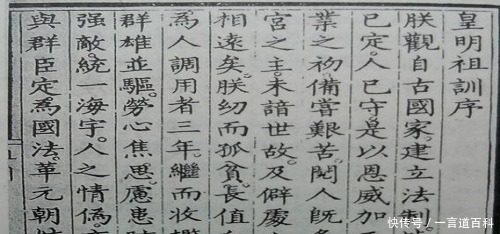 皇明祖訓序
朕觀自古國家。建立法制
已定。人已守。是以恩威加
業之初。備嘗艱苦。閱人既多
宮之主。未諳世故。及僻處
相遠矣。朕幼而孤貧。長值
爲人調用者三年。繼而收攬
群雄並驅。勞心焦思。慮患
强敵。統一海宇。人之情僞。
與群臣定爲國法。革元朝
快传号/一言道百科